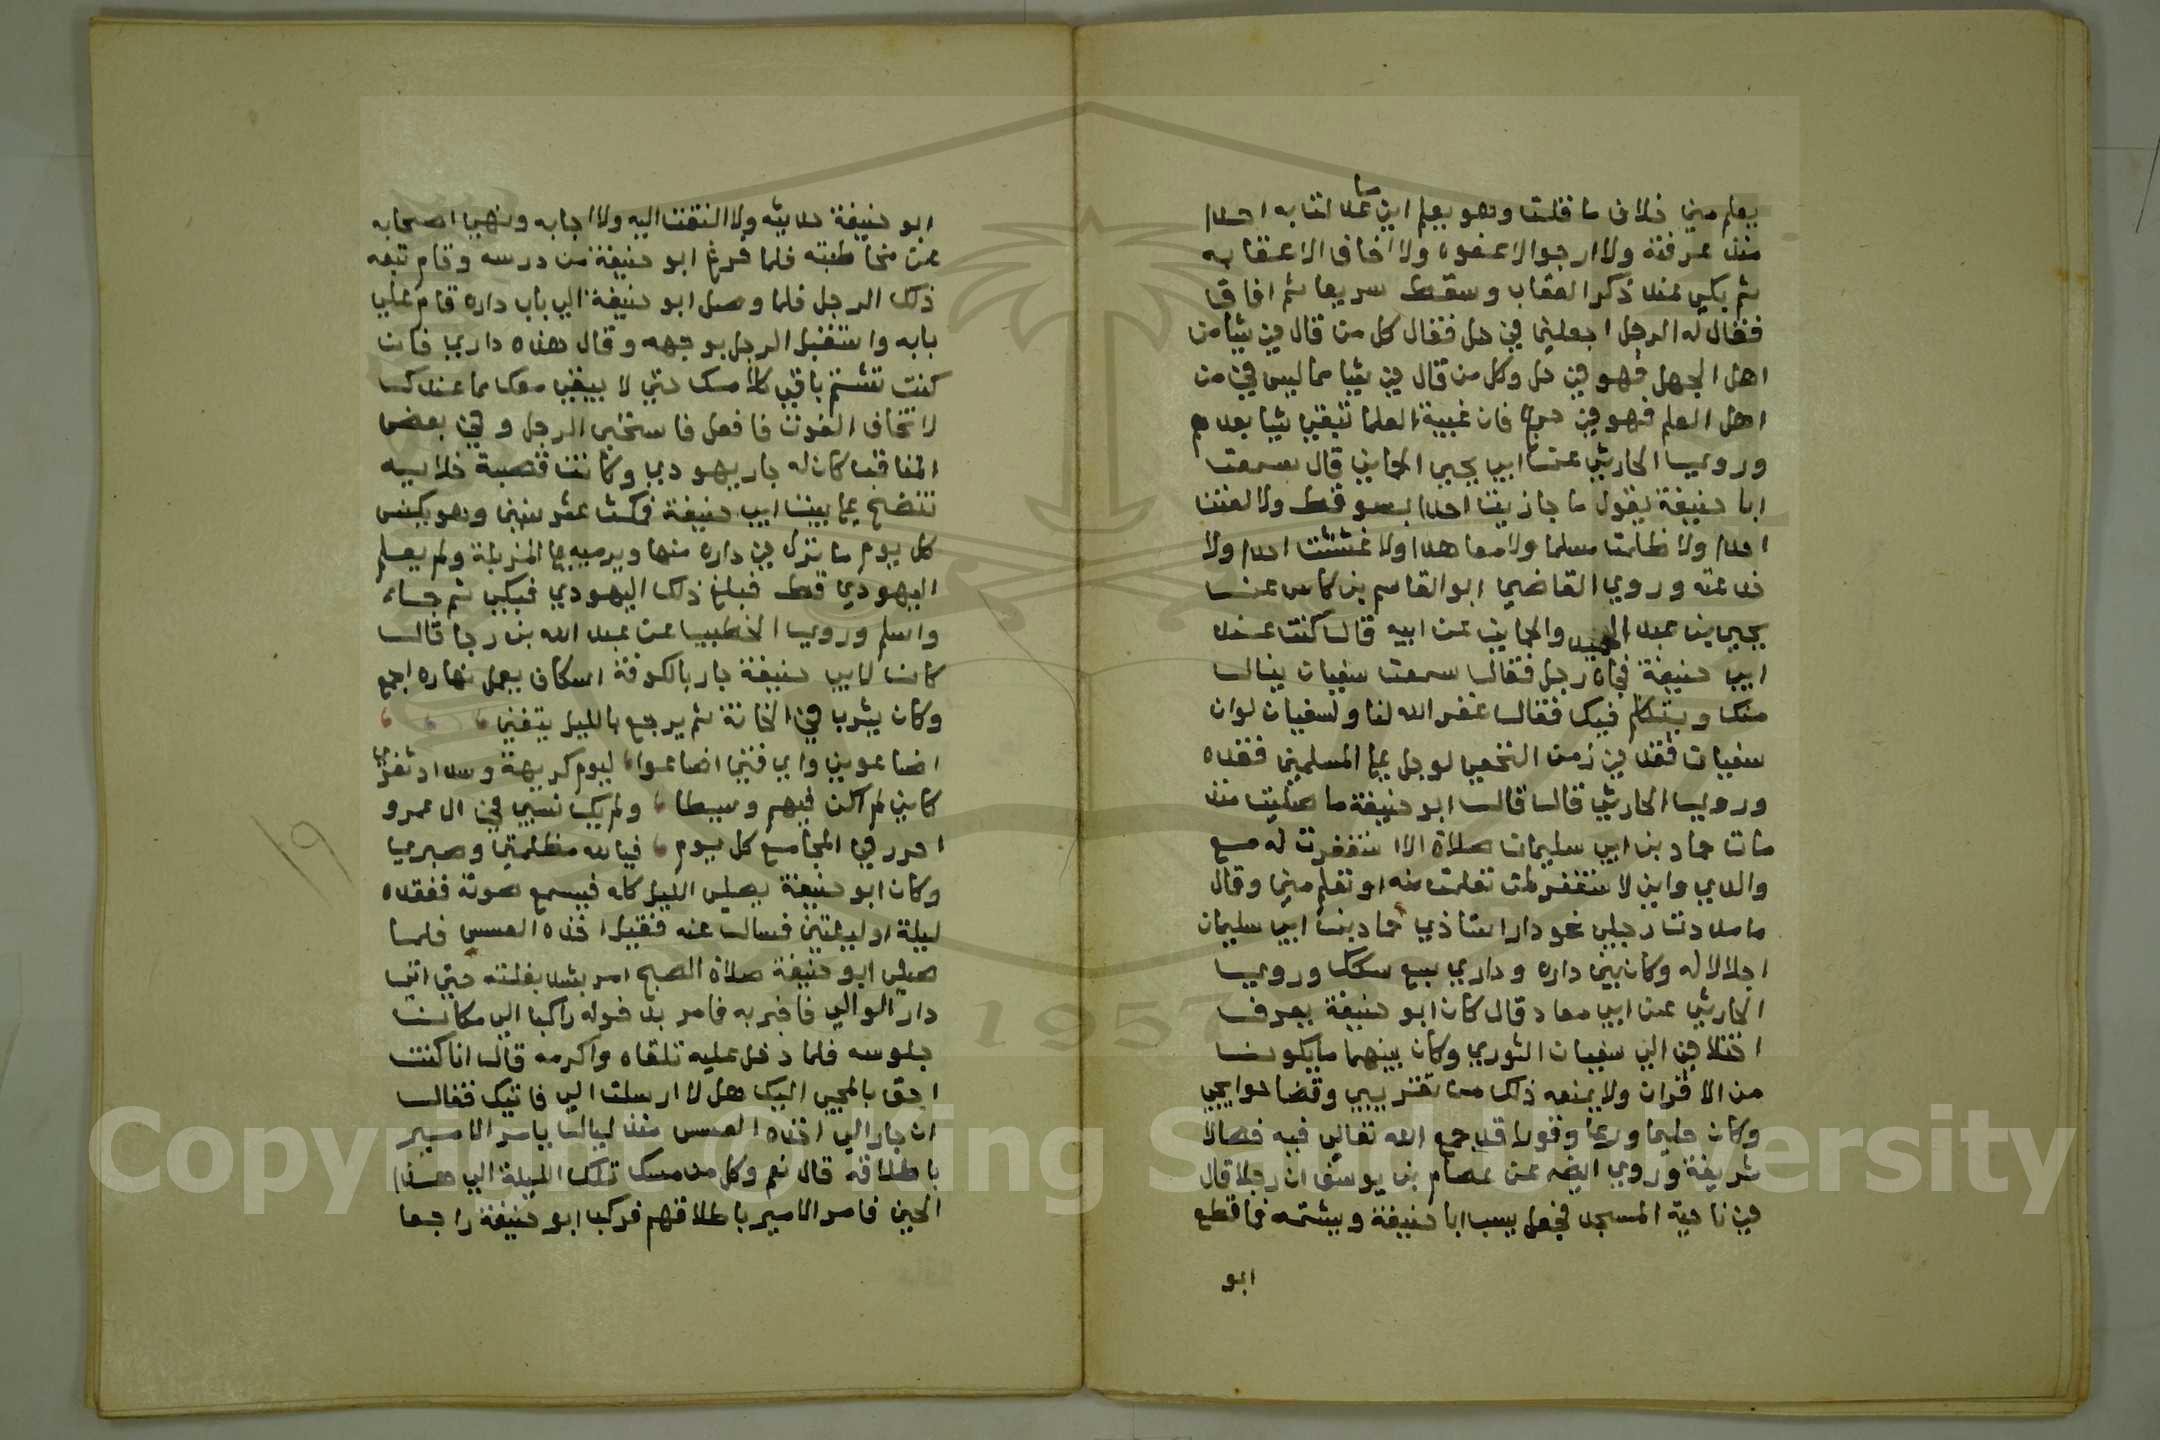 يعلم مني خلاف ما قلت وهو يعلم اني ما عدلت به احدا
منذ عرفته ولا ارجو الا عفوه ولا اخاف الا عقابه
ثم بكي عند ذكر العقاب وسقط سريعا ثم افاق
فقال له الرجل اجعلني في حل فقال كل من قال في شيا من
اهل الجهل فهو في حل وكل من قال في شيا مما ليس في من
اهل العلم فهو في حرج فان غيبة العلما تبقي شيا بعدهم
وروي الحارثي عن ابي يحيي الحماني قال سمعت
ابا حنيفة يقول ما جازيت احدا بسو قط ولا لعنت
احدا ولا ظلمت مسلما ولا معاهدا ولا غششت احدا ولا
خدعته وروي القاضي ابو القاسم بن كاس عن
يحيي بن عبد الحميد والحماني عن ابيه قال كنت عند
ابي حنيفة فجاه رجل فقال سمعت سفيان ينال
منك ويتكلم فيك فقال غفر الله لنا ولسفيان لو ان
سفيان فقد في زمن النخعي لوجل علي المسلمين فقده
وروي الحارثي قال قال ابو حنيفة ما صليت منذ
مات حماد بن ابي سليمان صلاة الا استغفرت له مع
والدي واني لاستغفر لمن تعلمت منه او تعلم مني وقال
ما مددت رجلي نحو دار استاذي حماد بن ابي سليمان
اجلالا له وكان بين داره وداري سبع سكك وروي
الحارثي عن ابي معاد قال كان ابو حنيفة يعرف
اختلافي الي سفيان الثوري وكان بينهما ما يكون
من الاقران ولا يمنعه ذلك من تقريبي وقضا حوايجي
وكان حليما ورعا وقورا قد جمع الله تعالي فيه خصالا
شريفة وروي ايضه عن عصام بن يوسف ان رجلا قال
في ناحية المسجد فجعل يسب ابا حنيفة ويشتمه فما قطع
ابو
ابو حنيفة حديثه ولا التفت اليه ولا اجابه ونهي اصحابه
عن مخاطبته فلما فرغ ابو حنيفة من درسه وقام تبعه
ذلك الرجل فلما وصل ابو حنيفة الي باب داره قام علي
بابه واستقبل الرجل بوجهه وقال هذه داري فان
كنت تستتم باقي كلامك حتي لا يبقي معك مما عندك
لا تخاف الفوت فافعل فاستحي الرجل وفي بعض
المناقب كان له جار يهودي وكانت قصبة خلاييه
تنضح علي بيت ابي حنيفة فمكث عشر سنين وهو يكنس
كل يوم ما نزل في داره منها ويرميه علي المزبلة ولم يعلم
اليهودي قط فبلغ ذلك اليهودي فبكي ثم جاء
واسلم وروي الخطيب عن عبد الله بن رجا قال
كان لابي حنيفة جار بالكوفة اسكاف يعمل نهاره اجمع
وكان يشرب في الخانة ثم يرجع بالليل يتغني
اضاعوني واي فتي اضاعوا ليوم كريهة وسداد ثغري
كاني لم اكن فيهم وسيطا ولم يك نسبي في ال عمرو
احرر في المجامع كل يوم فيالله مظلمتي وصبري
وكان ابو حنيفة يصلي الليل كله فيسمع صوته ففقده
ليلة او ليلتين فسال عنه فقيل اخذه العسس فلما
صلي ابو حنيفة صلاة الصبح امر بشد بغلته حتي اتي
دار الوالي فاخبر به فامر بدخوله راكبا الي مكان
جلوسه فلما دخل عليه تلقاه واكرمه قال انا كنت
احق بالمجي اليك هل لا ارسلت الي فاتيك فقال
ان جارا لي اخذه العسس منذ ليال يامر الامير
باطلاقه قال نعم وكل من مسك تلك الليلة الي هذا
الحين فامر الامير باطلاقهم فركب ابو حنيفة راجعا
١٩
1957
Copyright © King Saud University